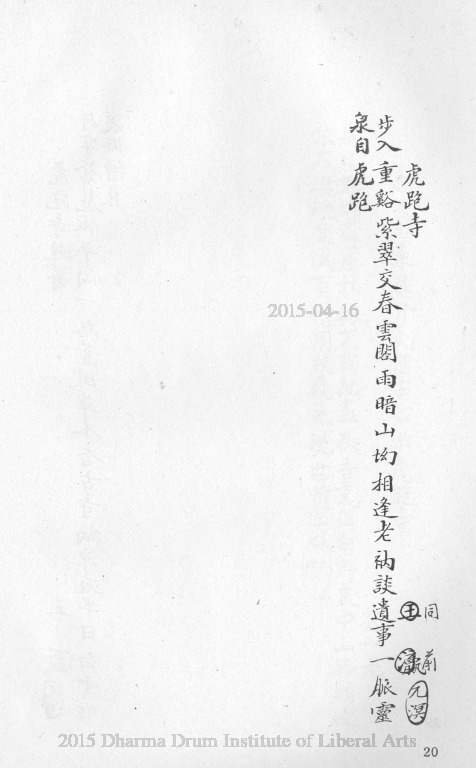 虎跑寺
同前
王瀛
元溟
步入重谿紫翠交春雲閣雨暗山坳相逢老衲談遺事一脈靈
泉自虎跑
2015-04-16
2015 Dharma Drum Institute of Liberal Arts
20